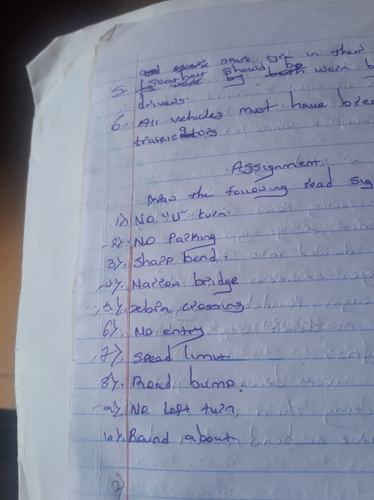 spare tyre in their
5. Seatbelt should be worn by
drivers.
6. All vehicles must have
traffic
Assignment.
Draw the following road sig
1). NO "U" turn.
2). NO Parking
3). Sharp bend.
4). Narrow bridge
5). zebra crossing
6). No entry
7). Speed limit.
8). Road bump.
9). No left turn
10). Round about